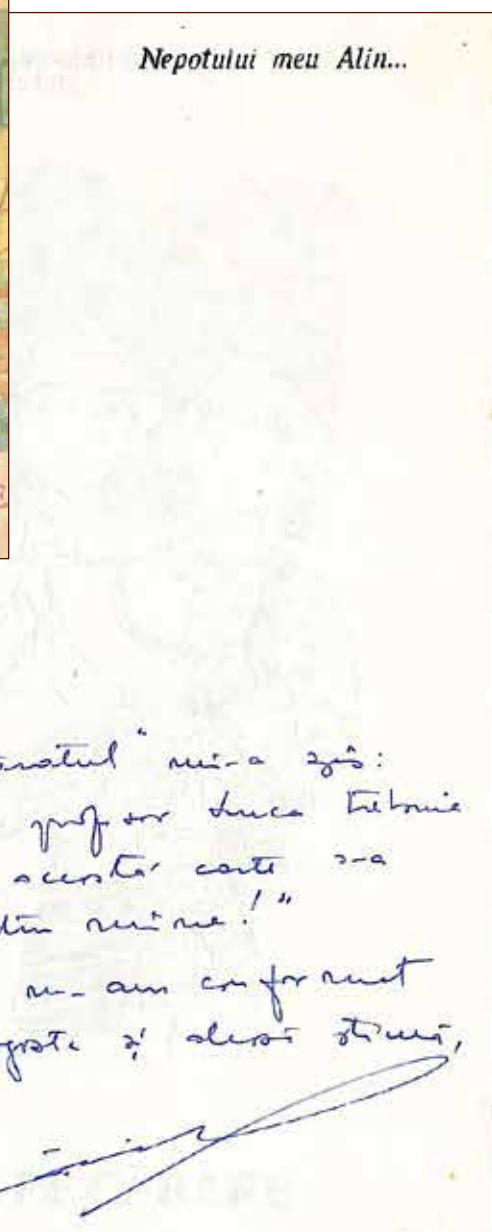 Nepotului meu Alin...
mi-a zis:
profesor Luca trebuie
această carte s-a
mine!"
m-am conformat
și aleasă stimă,